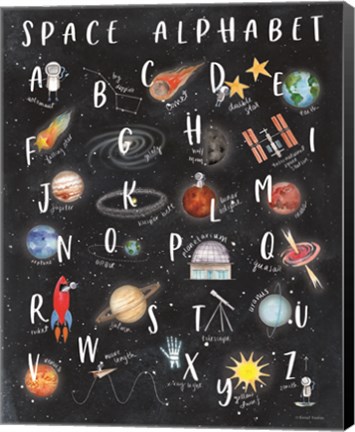 SPACE ALPHABET
A
astronaut
B
big dipper
C
comet
D
double star
E
earth
F
falling star
G
H
I
international space station
J
jupiter
K
kuiper belt
L
lunar eclipse
M
N
neptune
O
P
planetarium
Q
quasar
R
rocket
S
saturn
T
telescope
U
uranus
V
venus
W
wave length
X
x-ray light
Y
yellow dwarf
Z